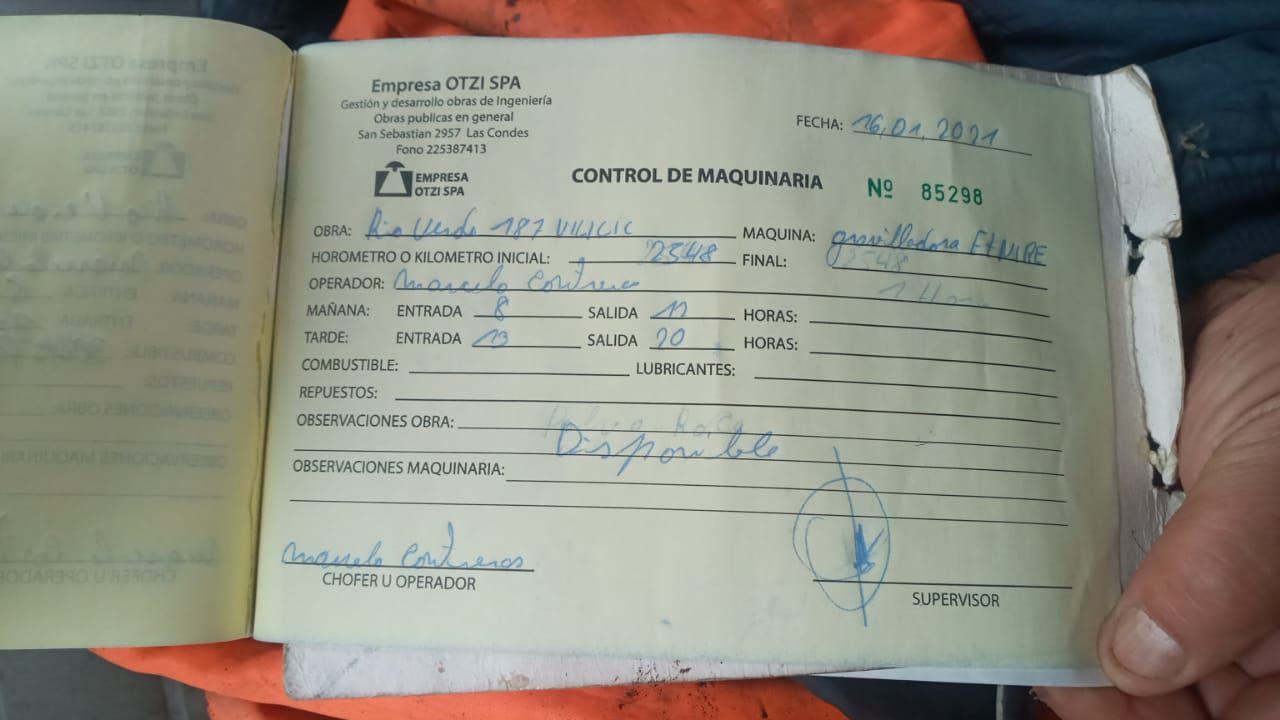 Empresa OTZI SPA
Gestión y desarrollo obras de Ingeniería
Obras publicas en general
San Sebastian 2957 Las Condes
Fono 225387413
EMPRESA
OTZI SPA
FECHA: 16,01,2021
CONTROL DE MAQUINARIA Nº 85298
OBRA: Rio Verde 187 MAQUINA: gravilladora
HOROMETRO O KILOMETRO INICIAL: 2548 FINAL: 2548
OPERADOR: Marcelo Contreras 1 Hora
MAÑANA: ENTRADA 8 SALIDA 11 HORAS:
TARDE: ENTRADA 13 SALIDA 20 HORAS:
COMBUSTIBLE: LUBRICANTES:
REPUESTOS:
OBSERVACIONES OBRA:
Disponible
OBSERVACIONES MAQUINARIA:
Marcelo Contreras
CHOFER U OPERADOR
SUPERVISOR